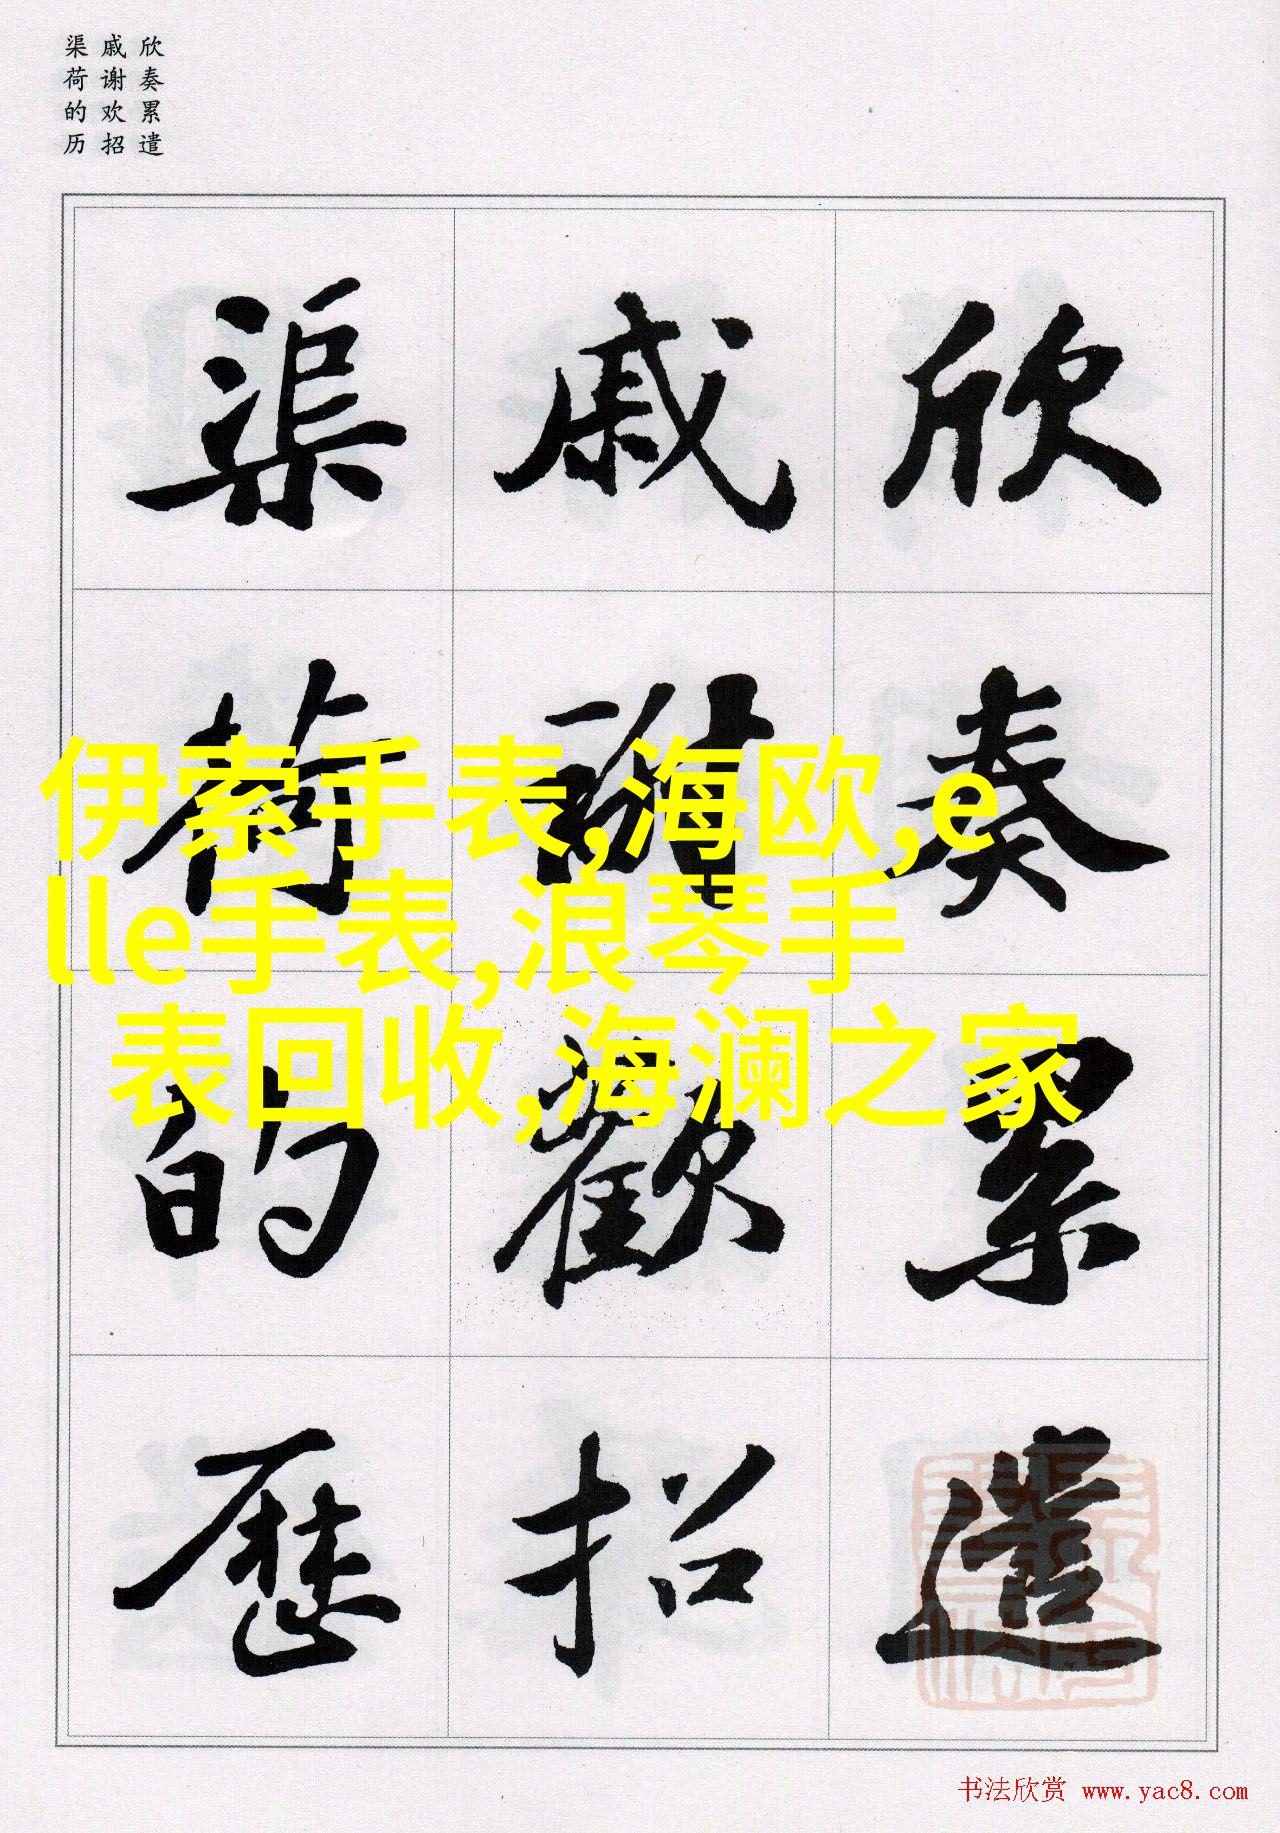 欣奏累遣
戚谢欢招
渠荷的历
欣奏累遣
戚謝歡招
渠荷的歷
伊索手表,海欧,e
lle手表,浪琴手
表回收,海澜之家
书法欣赏 www.yac8.com